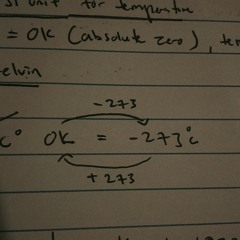 SI unit for temperature
= 0K (absolute zero), te
elvin
-273
C° 0K = -273°C
+273